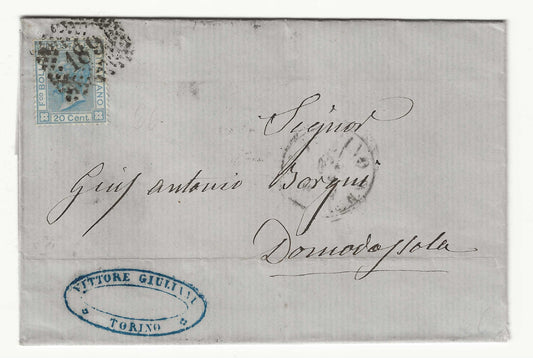 189
BOLLO
ITALIANO
20 Cent.
Signor
Giuș antonio Borgnis
Domodossola
VITTORE GIULIANI
TORINO